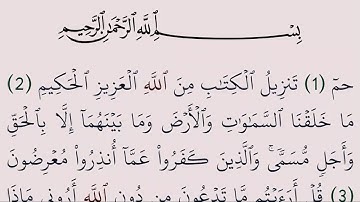 بِسْمِ ٱللَّهِ ٱلرَّحْمَٰنِ ٱلرَّحِيمِ
حمٓ (1) تَنزِيلُ ٱلْكِتَٰبِ مِنَ ٱللَّهِ ٱلْعَزِيزِ ٱلْحَكِيمِ (2)
مَا خَلَقْنَا ٱلسَّمَٰوَٰتِ وَٱلْأَرْضَ وَمَا بَيْنَهُمَآ إِلَّا بِٱلْحَقِّ
وَأَجَلٍ مُّسَمًّىۚ وَٱلَّذِينَ كَفَرُوا۟ عَمَّآ أُنذِرُوا۟ مُعْرِضُونَ
(3) قُلْ أَرَءَيْتُم مَّا تَدْعُونَ مِن دُونِ ٱللَّهِ أَرُونِى مَاذَا